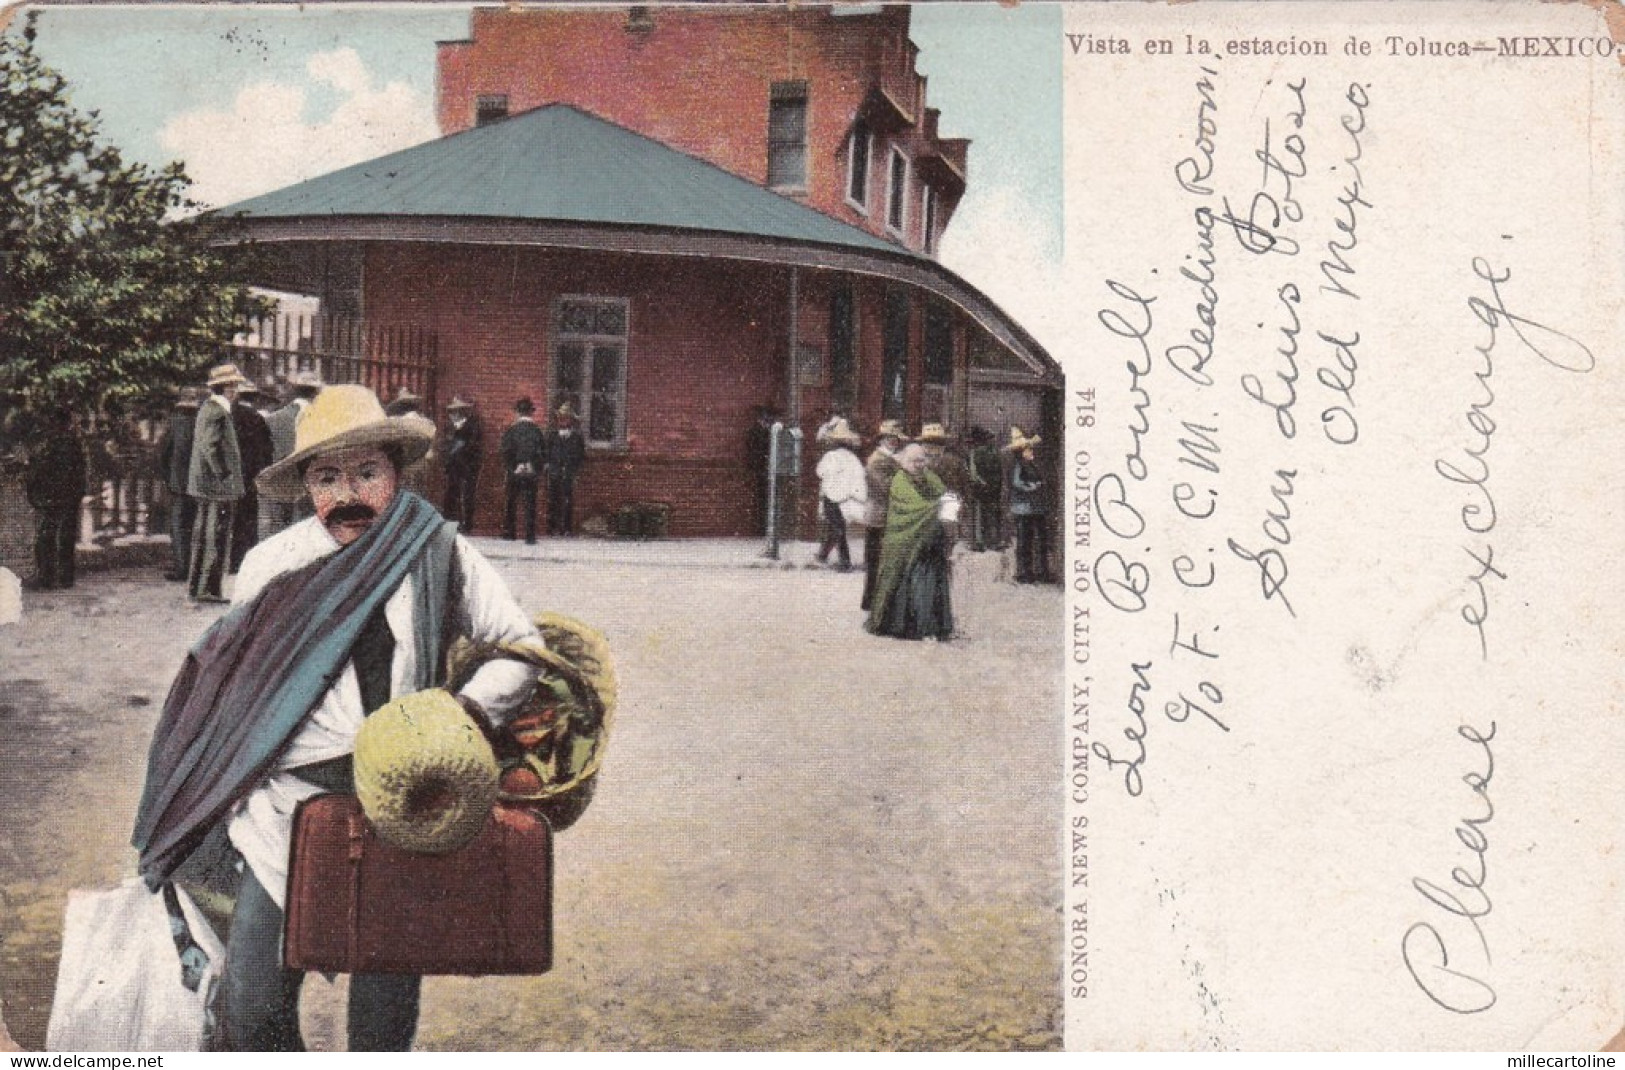 Vista en la estacion de Toluca—MEXICO.
SONORA NEWS COMPANY, CITY OF MEXICO 814
Leon B. Powell.
c/o F. C. C. M. Reading Room.
San Luis Potosi
Old Mexico.
Please exchange.
millecartoline